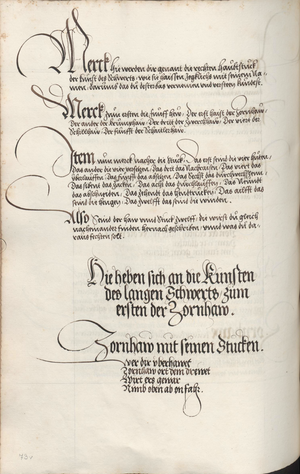 Merck hie werden dir genant die rechten Haubtstuck
der kunst des Schwerts, wie sie haissen, yegklichs mit seinem Na
men, darumb das du dest bas vernemen und versteen kundest.
Merck zum ersten die funff hew. Der erst haist der Zornhaw.
Der ander der Krumphaw. Der drit der Zwerchhaw. Der vierd der
Schilhaw. Der funfft der Schaitlerhaw.
Item nun merck nacher die Stuck. Das erst send die vier huten.
Das ander die vier versetzen. Das drit das Nachraisen. Das vierd das
uberlauffen. Das funfft das absetzen. Das Sechst das durchwechslen.
Das sibend das zucken. Das acht das durchlauffen. Das Neundt
das abschneiden. Das zehendt das Hendtrucken. Das ailfft das
send die hengen. Das zwelfft das send die winden.
Also Send der haw unnd Stuck zwelff, die wirst du gleich
nacheinander finden hernach geschriben, unnd was du da
raus fechten solt.
Hie heben sich an die Kunsten
des langen Schwerts, zum
ersten der Zornhaw.
Zornhaw mit seinen Stucken.
wer dir uberhawet
Zornhaw ort dem drewet
Wirt ers gewar
Nimb oben ab on fahr.